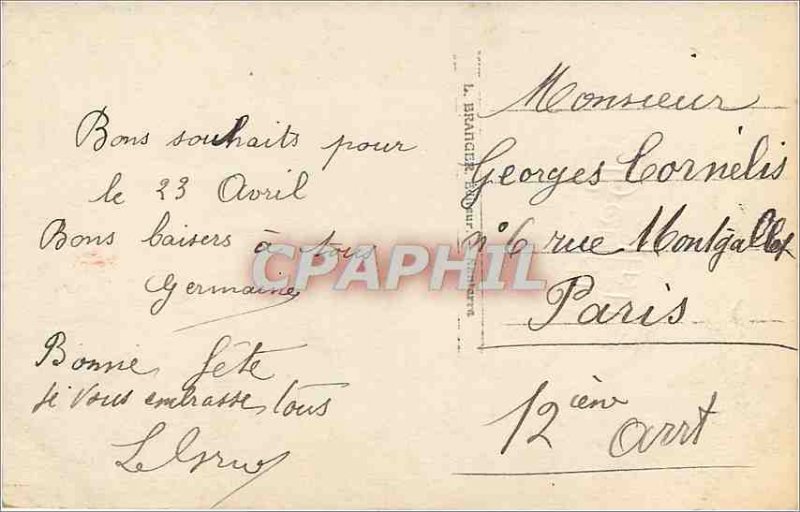 Bons souhaits pour
le 23 Avril
Bons baisers à tous
Germaine
Bonne fête
je vous embrasse tous
L. BRANGER, Editeur, Nanterre
Monsieur
Georges Cornélis
n° 6 rue Montgallet
Paris
12ième
arrt
CPAPHIL